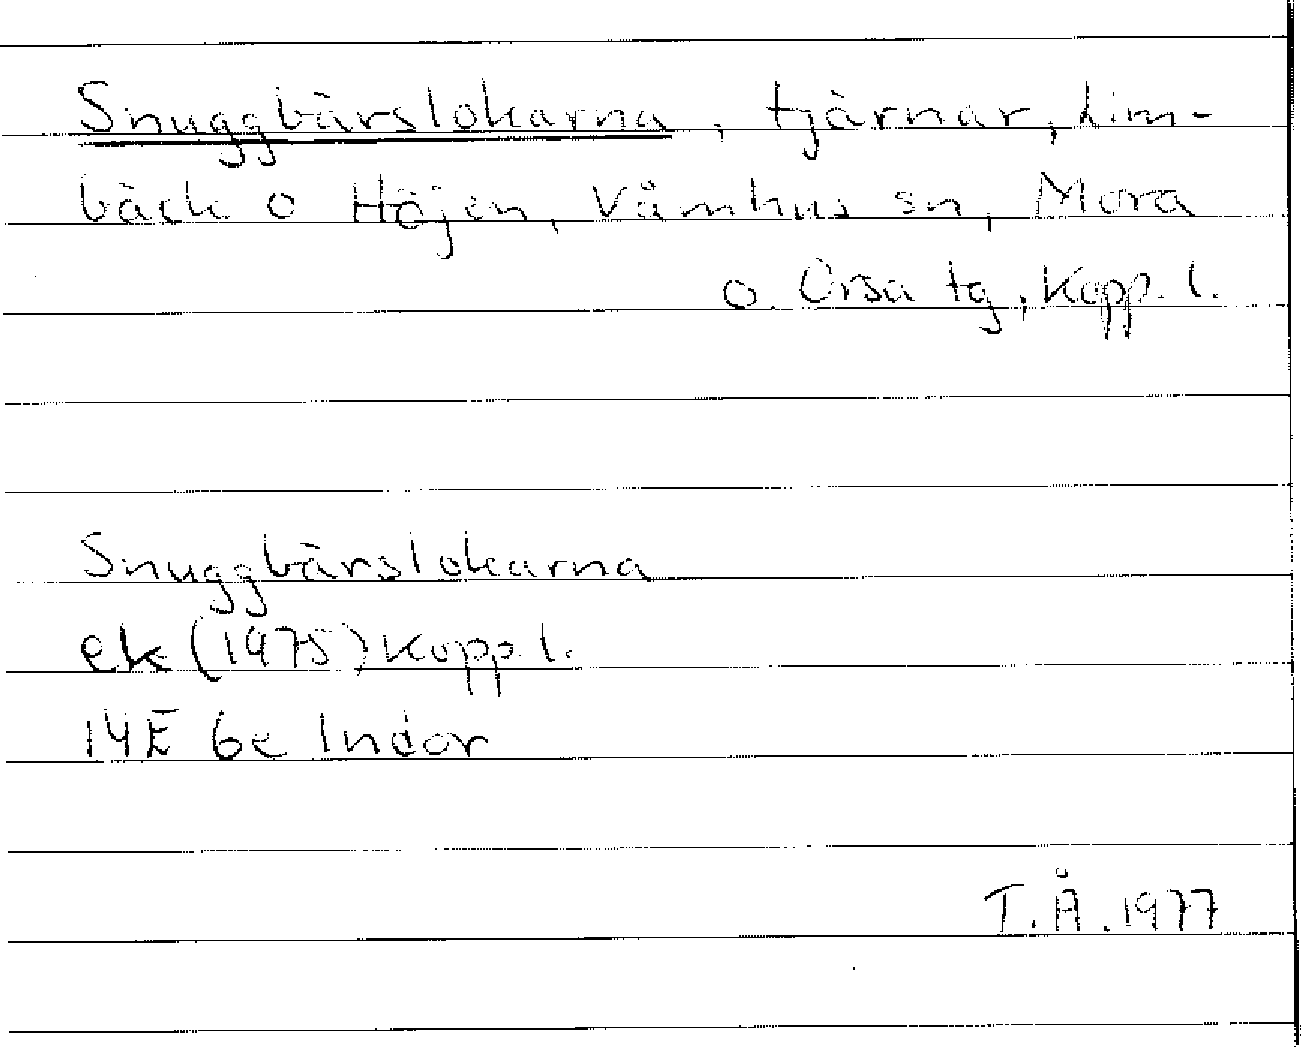 Snuggbärslokarna, tjärnar, Lim-
bäck o Höjen, Våmhus sn, Mora
o. Orsa tg, Kopp. l.
Snuggbärslokarna
ek (1975) Kopp l.
14E 6e Indor
I. Å. 1977